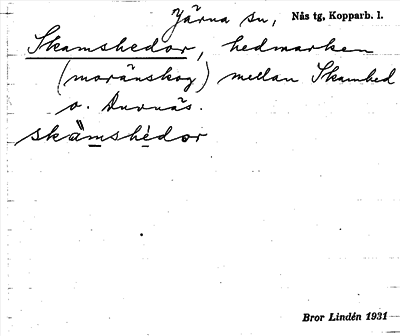 Järna sn, Nås tg, Kopparb. l.
Skamshedor, hedmarken
(moränskog) mellan Skamhed
o. Durnäs.
skämshèdor
Bror Lindén 1931